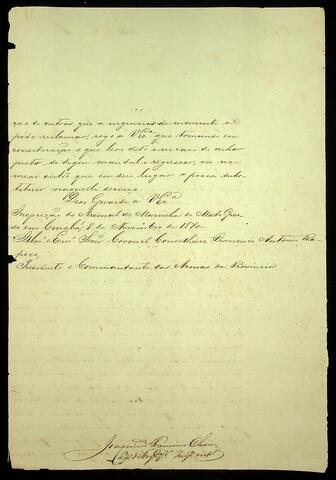 ção de outras que a urgencia do momento só
póde reclamar, rogo a V.Ex.ª que tomando em
consideração o que levo dito no caso de achar
justo se digne mandal-o regressar, ou no-
mear outro que em seu lugar o possa subs-
tituir naquelle serviço.
Deos Guarde a V.Ex.ª
Inspecção do Arsenal de Marinha de Mato Gros-
so em Cuiabá, 8 de Novembro de 1870
Illm.º Exm.º Snr. Coronel Conselheiro Francisco Antonio Ra-
pozo,
Presidente e Commandante das Armas da Provincia
Joaquim Francisco